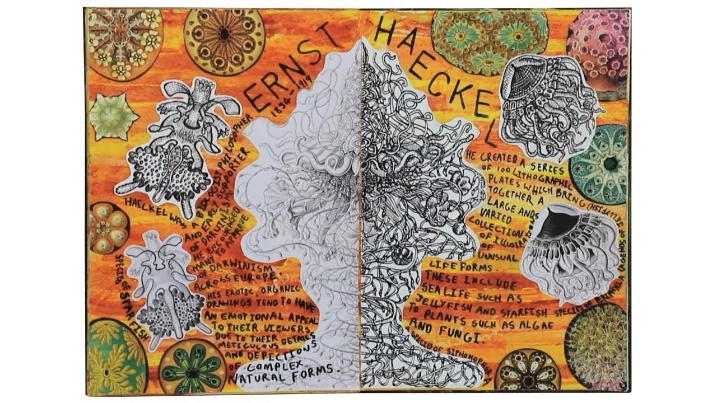 ERNST HAECKEL
1834 1919
HAECKEL WAS
A BIOLOGIST PHILOSOPHER
AND EARLY SUPPORTER
OF DARWIN.
OF DARWINISM
ACROSS EUROPE.
HIS EXOTIC, ORGANIC
DRAWINGS TEND TO HAVE
AN EMOTIONAL APPEAL
TO THEIR VIEWERS
DUE TO THEIR DETAILS
METICULOUS
AND DEPICTIONS
OF COMPLEX
NATURAL FORMS.
SPECIES OF STAR FISH
HE CREATED A SERIES
OF 100 LITHOGRAPHIC
PLATES WHICH BRING
TOGETHER A
LARGE AND
VARIED
COLLECTION
OF
UNUSUAL
LIFE FORMS.
THESE INCLUDE
SEALIFE SUCH AS
JELLYFISH AND STARFISH
TO PLANTS SUCH AS ALGAE
AND FUNGI.
SPECIES OF SIPHONOPHORAE